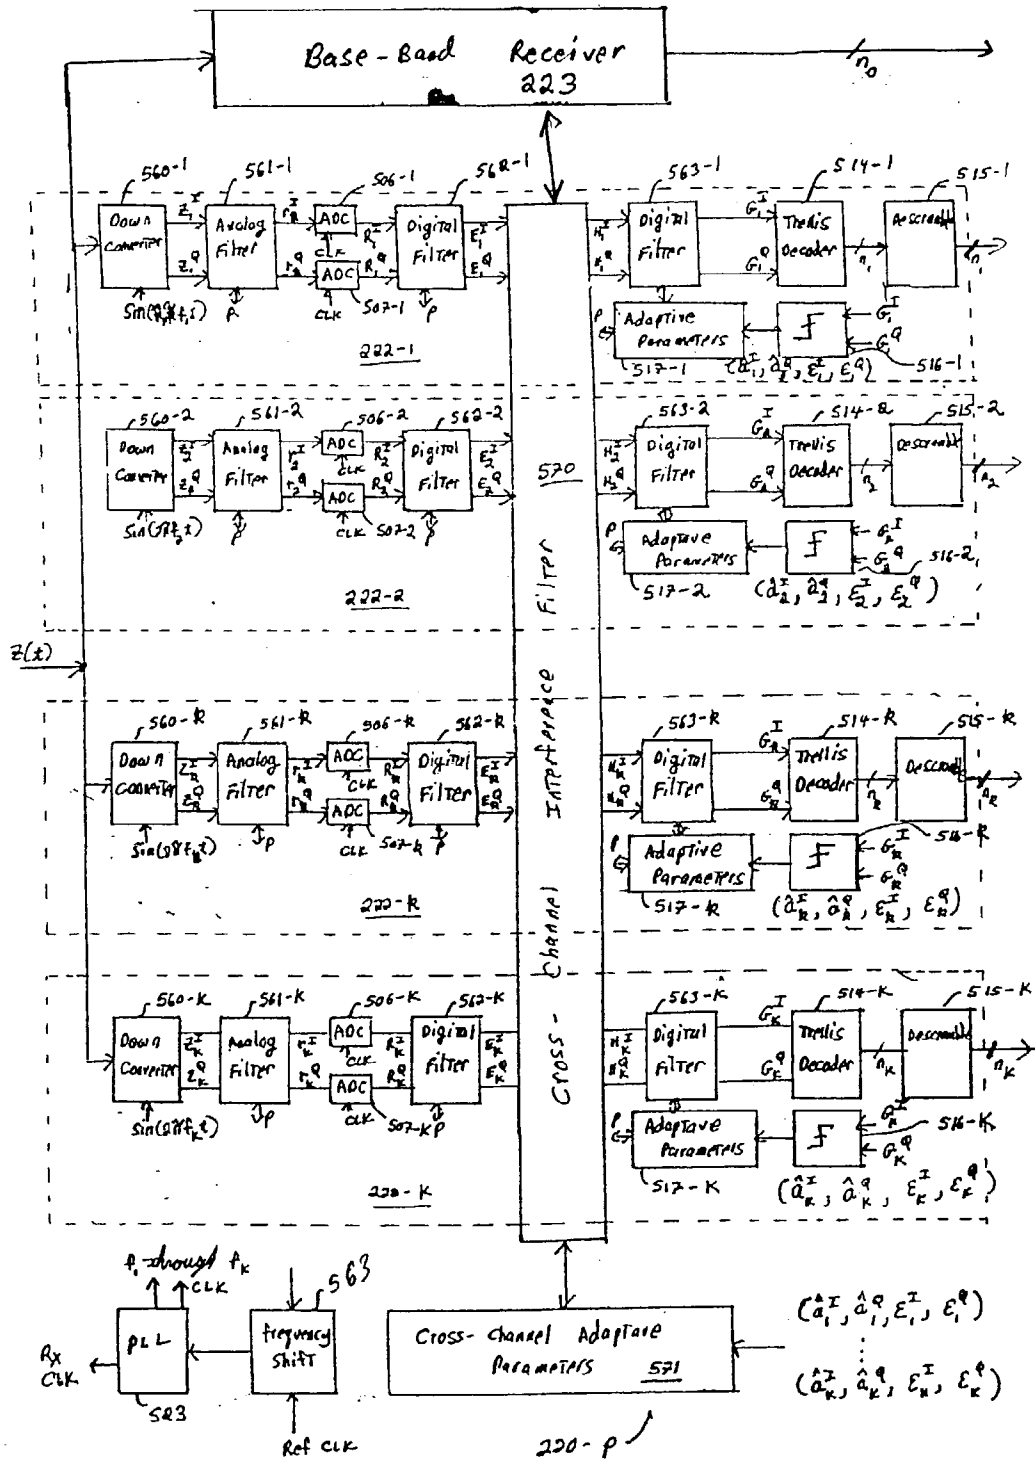 Base-Band Receiver
223
n0
560-1 561-1 506-1 562-1 563-1 514-1 515-1
Down Converter
Z1^I
Z1^Q
Analog Filter
ADC
CLK
ADC
CLK
R1^I
R1^Q
Digital Filter
E1^I
E1^Q
H1^I
H1^Q
Digital Filter
G1^I
G1^Q
Trellis Decoder
n1
P
P
507-1
222-1
P
Adaptive Parameters
G1^I
G1^Q
517-1
516-1
560-2 561-2 506-2 562-2 563-2 514-2 515-2
Down Converter
Z2^I
Z2^Q
Analog Filter
r2^I
r2^Q
ADC
CLK
ADC
CLK
R2^I
R2^Q
Digital Filter
E2^I
E2^Q
570
H2^I
H2^Q
Digital Filter
G2^I
G2^Q
Trellis Decoder
n2
n2
Sin(2πf2t)
507-2
222-2
P
Adaptive Parameters
G2^I
G2^Q
517-2
516-2
(â2^I, â2^Q, ε2^I, ε2^Q)
Z(t)
Cross-Channel Interference Filter
560-k 561-k 506-k 562-k 563-k 514-k 515-k
Down Converter
Zk^I
Zk^Q
Analog Filter
rk^I
rk^Q
ADC
CLK
ADC
CLK
Rk^I
Rk^Q
Digital Filter
Ek^I
Ek^Q
Hk^I
Hk^Q
Digital Filter
Gk^I
Gk^Q
Trellis Decoder
nk
nk
Sin(2πfkt)
P
507-k
P
222-k
P
Adaptive Parameters
Gk^I
Gk^Q
517-k
516-k
(âk^I, âk^Q, εk^I, εk^Q)
560-K 561-K 506-K 562-K 563-K 514-K 515-K
Down Converter
ZK^I
ZK^Q
Analog Filter
rK^I
rK^Q
ADC
CLK
ADC
CLK
RK^I
RK^Q
Digital Filter
EK^I
EK^Q
HK^I
HK^Q
Digital Filter
GK^I
GK^Q
Trellis Decoder
nK
nK
Sin(2πfKt)
P
507-K
P
P
Adaptive Parameters
GK^I
GK^Q
517-K
516-K
(âK^I, âK^Q, εK^I, εK^Q)
f1 through fK
CLK
563
PLL
Frequency Shift
Rx CLK
523
Ref CLK
Cross-Channel Adaptive Parameters 571
(â1^I, â1^Q, ε1^I, ε1^Q)
(âK^I, âK^Q, εK^I, εK^Q)
220-P